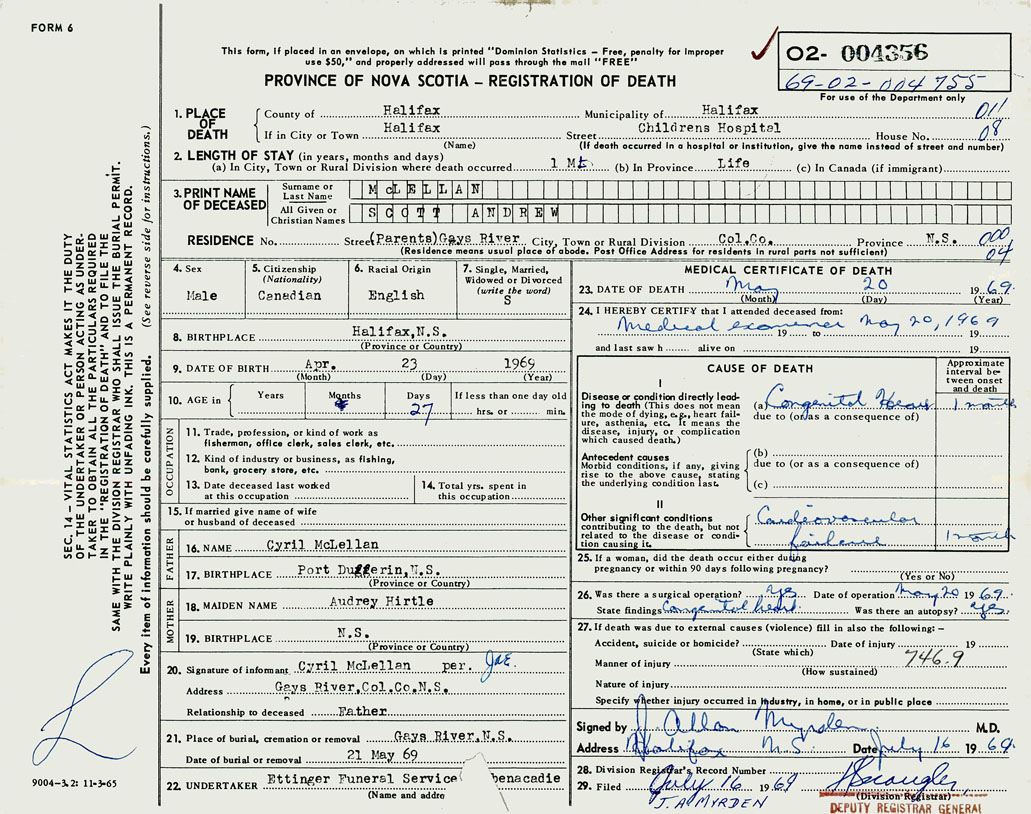 FORM 6
This form, if placed in an envelope, on which is printed "Dominion Statistics – Free, penalty for improper
use $50," and properly addressed will pass through the mail "FREE"
PROVINCE OF NOVA SCOTIA – REGISTRATION OF DEATH
02- 004356
69-02-004755
For use of the Department only
SEC. 14 – VITAL STATISTICS ACT MAKES IT THE DUTY
OF THE UNDERTAKER OR PERSON ACTING AS UNDER-
TAKER TO OBTAIN ALL THE PARTICULARS REQUIRED
IN THE "REGISTRATION OF DEATH" AND TO FILE THE
SAME WITH THE DIVISION REGISTRAR WHO SHALL ISSUE THE BURIAL PERMIT.
WRITE PLAINLY WITH UNFADING INK. THIS IS A PERMANENT RECORD.
Every item of information should be carefully supplied. (See reverse side for instructions.)
9004–3.2: 11-3-65
1. PLACE OF DEATH
County of Halifax Municipality of Halifax 011
If in City or Town Halifax Street Childrens Hospital House No. 08
(Name) (If death occurred in a hospital or institution, give the name instead of street and number)
2. LENGTH OF STAY (in years, months and days)
(a) In City, Town or Rural Division where death occurred 1 Mt (b) In Province Life (c) In Canada (if immigrant)
3. PRINT NAME OF DECEASED
Surname or Last Name McLELLAN
All Given or Christian Names SCOTT ANDREW
RESIDENCE No. Street (Parents)Gays River City, Town or Rural Division Col.Co. Province N.S. 000
(Residence means usual place of abode. Post Office Address for residents in rural parts not sufficient) 04
4. Sex Male
5. Citizenship (Nationality) Canadian
6. Racial Origin English
7. Single, Married, Widowed or Divorced (write the word) S
8. BIRTHPLACE Halifax,N.S.
(Province or Country)
9. DATE OF BIRTH Apr. 23 1969
(Month) (Day) (Year)
10. AGE in Years Months Days 27 If less than one day old
hrs. or min.
OCCUPATION
11. Trade, profession, or kind of work as
fisherman, office clerk, sales clerk, etc.
12. Kind of industry or business, as fishing,
bank, grocery store, etc.
13. Date deceased last worked
at this occupation
14. Total yrs. spent in
this occupation
15. If married give name of wife
or husband of deceased
FATHER
16. NAME Cyril McLellan
17. BIRTHPLACE Port Dufferin,N.S.
(Province or Country)
MOTHER
18. MAIDEN NAME Audrey Hirtle
19. BIRTHPLACE N.S.
(Province or Country)
20. Signature of informant Cyril McLellan per.
Address Gays River,Col.Co.N.S.
Relationship to deceased Father
21. Place of burial, cremation or removal Gays River,N.S.
Date of burial or removal 21 May 69
22. UNDERTAKER Ettinger Funeral Service benacadie
(Name and addre
MEDICAL CERTIFICATE OF DEATH
23. DATE OF DEATH May 20 1969.
(Month) (Day) (Year)
24. I HEREBY CERTIFY that I attended deceased from:
Medical examiner May 20, 1969
19 to 19
and last saw h alive on 19
CAUSE OF DEATH
Approximate interval between onset and death
I
Disease or condition directly lead-
ing to death (This does not mean
the mode of dying, e.g., heart fail-
ure, asthenia, etc. It means the
disease, injury, or complication
which caused death.)
(a) Congenital Heart 1 month
due to (or as a consequence of)
Antecedent causes
Morbid conditions, if any, giving
rise to the above cause, stating
the underlying condition last.
(b)
due to (or as a consequence of)
(c)
II
Other significant conditions
contributing to the death, but not
related to the disease or condi-
tion causing it.
Cardiovascular
failure 1 month
25. If a woman, did the death occur either during
pregnancy or within 90 days following pregnancy?
(Yes or No)
26. Was there a surgical operation? Yes Date of operation May 20 1969.
State findings Congenital heart. Was there an autopsy? Yes.
27. If death was due to external causes (violence) fill in also the following: –
Accident, suicide or homicide? Date of injury 19
(State which) 746.9
Manner of injury
(How sustained)
Nature of injury
Specify whether injury occurred in industry, in home, or in public place
Signed by J. Allan Myrden M.D.
Address Halifax N.S. Date July 16 1969.
28. Division Registrar's Record Number
29. Filed July 16 1969
(Division Registrar)
J.A MYRDEN
DEPUTY REGISTRAR GENERAL